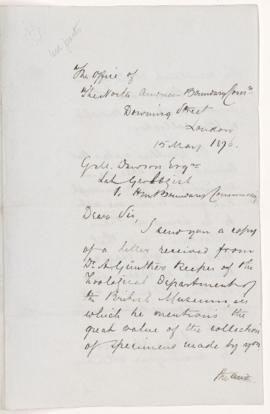 The Office of
The North American Boundary Comn
Downing Street
London
15 May 1876.
G. M. Dawson Esqre
Late Geologist
to H.M. Boundary Commission
Dear Sir,
I send you a copy
of a letter received from
Dr. A. Günther Keeper of the
Zoological Department of
the British Museum, in
which he mentions the
great value of the collection
of specimens made by you